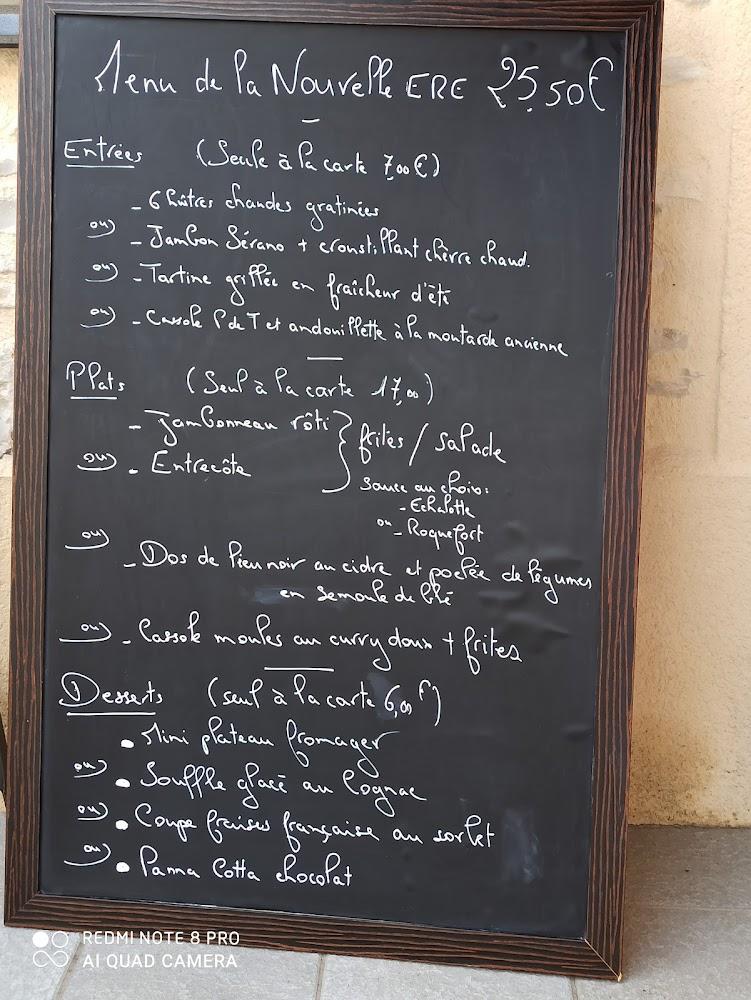 Menu de la Nouvelle ERE 25.50€
Entrées (Seule à la carte 7,00€)
- 6 huîtres chaudes gratinées
ou - Jambon Sérano + croustillant chèvre chaud.
ou - Tartine grillée en fraîcheur d'été
ou - Cassole P de T et andouillette à la moutarde ancienne
Plats (Seul à la carte 17,00)
- Jambonneau rôti
ou - Entrecôte
frites / salade
Sauce au choix:
- Echalotte
ou - Roquefort
ou - Dos de lieu noir au cidre et poelée de légumes
en semoule de blé
ou - Cassole moules au curry doux + frites
Desserts (seul à la carte 6,00€)
• Mini plateau fromager
ou • Souffle glacé au Cognac
ou • Coupe fraises française au sorbet
ou • Panna Cotta chocolat
REDMI NOTE 8 PRO
AI QUAD CAMERA